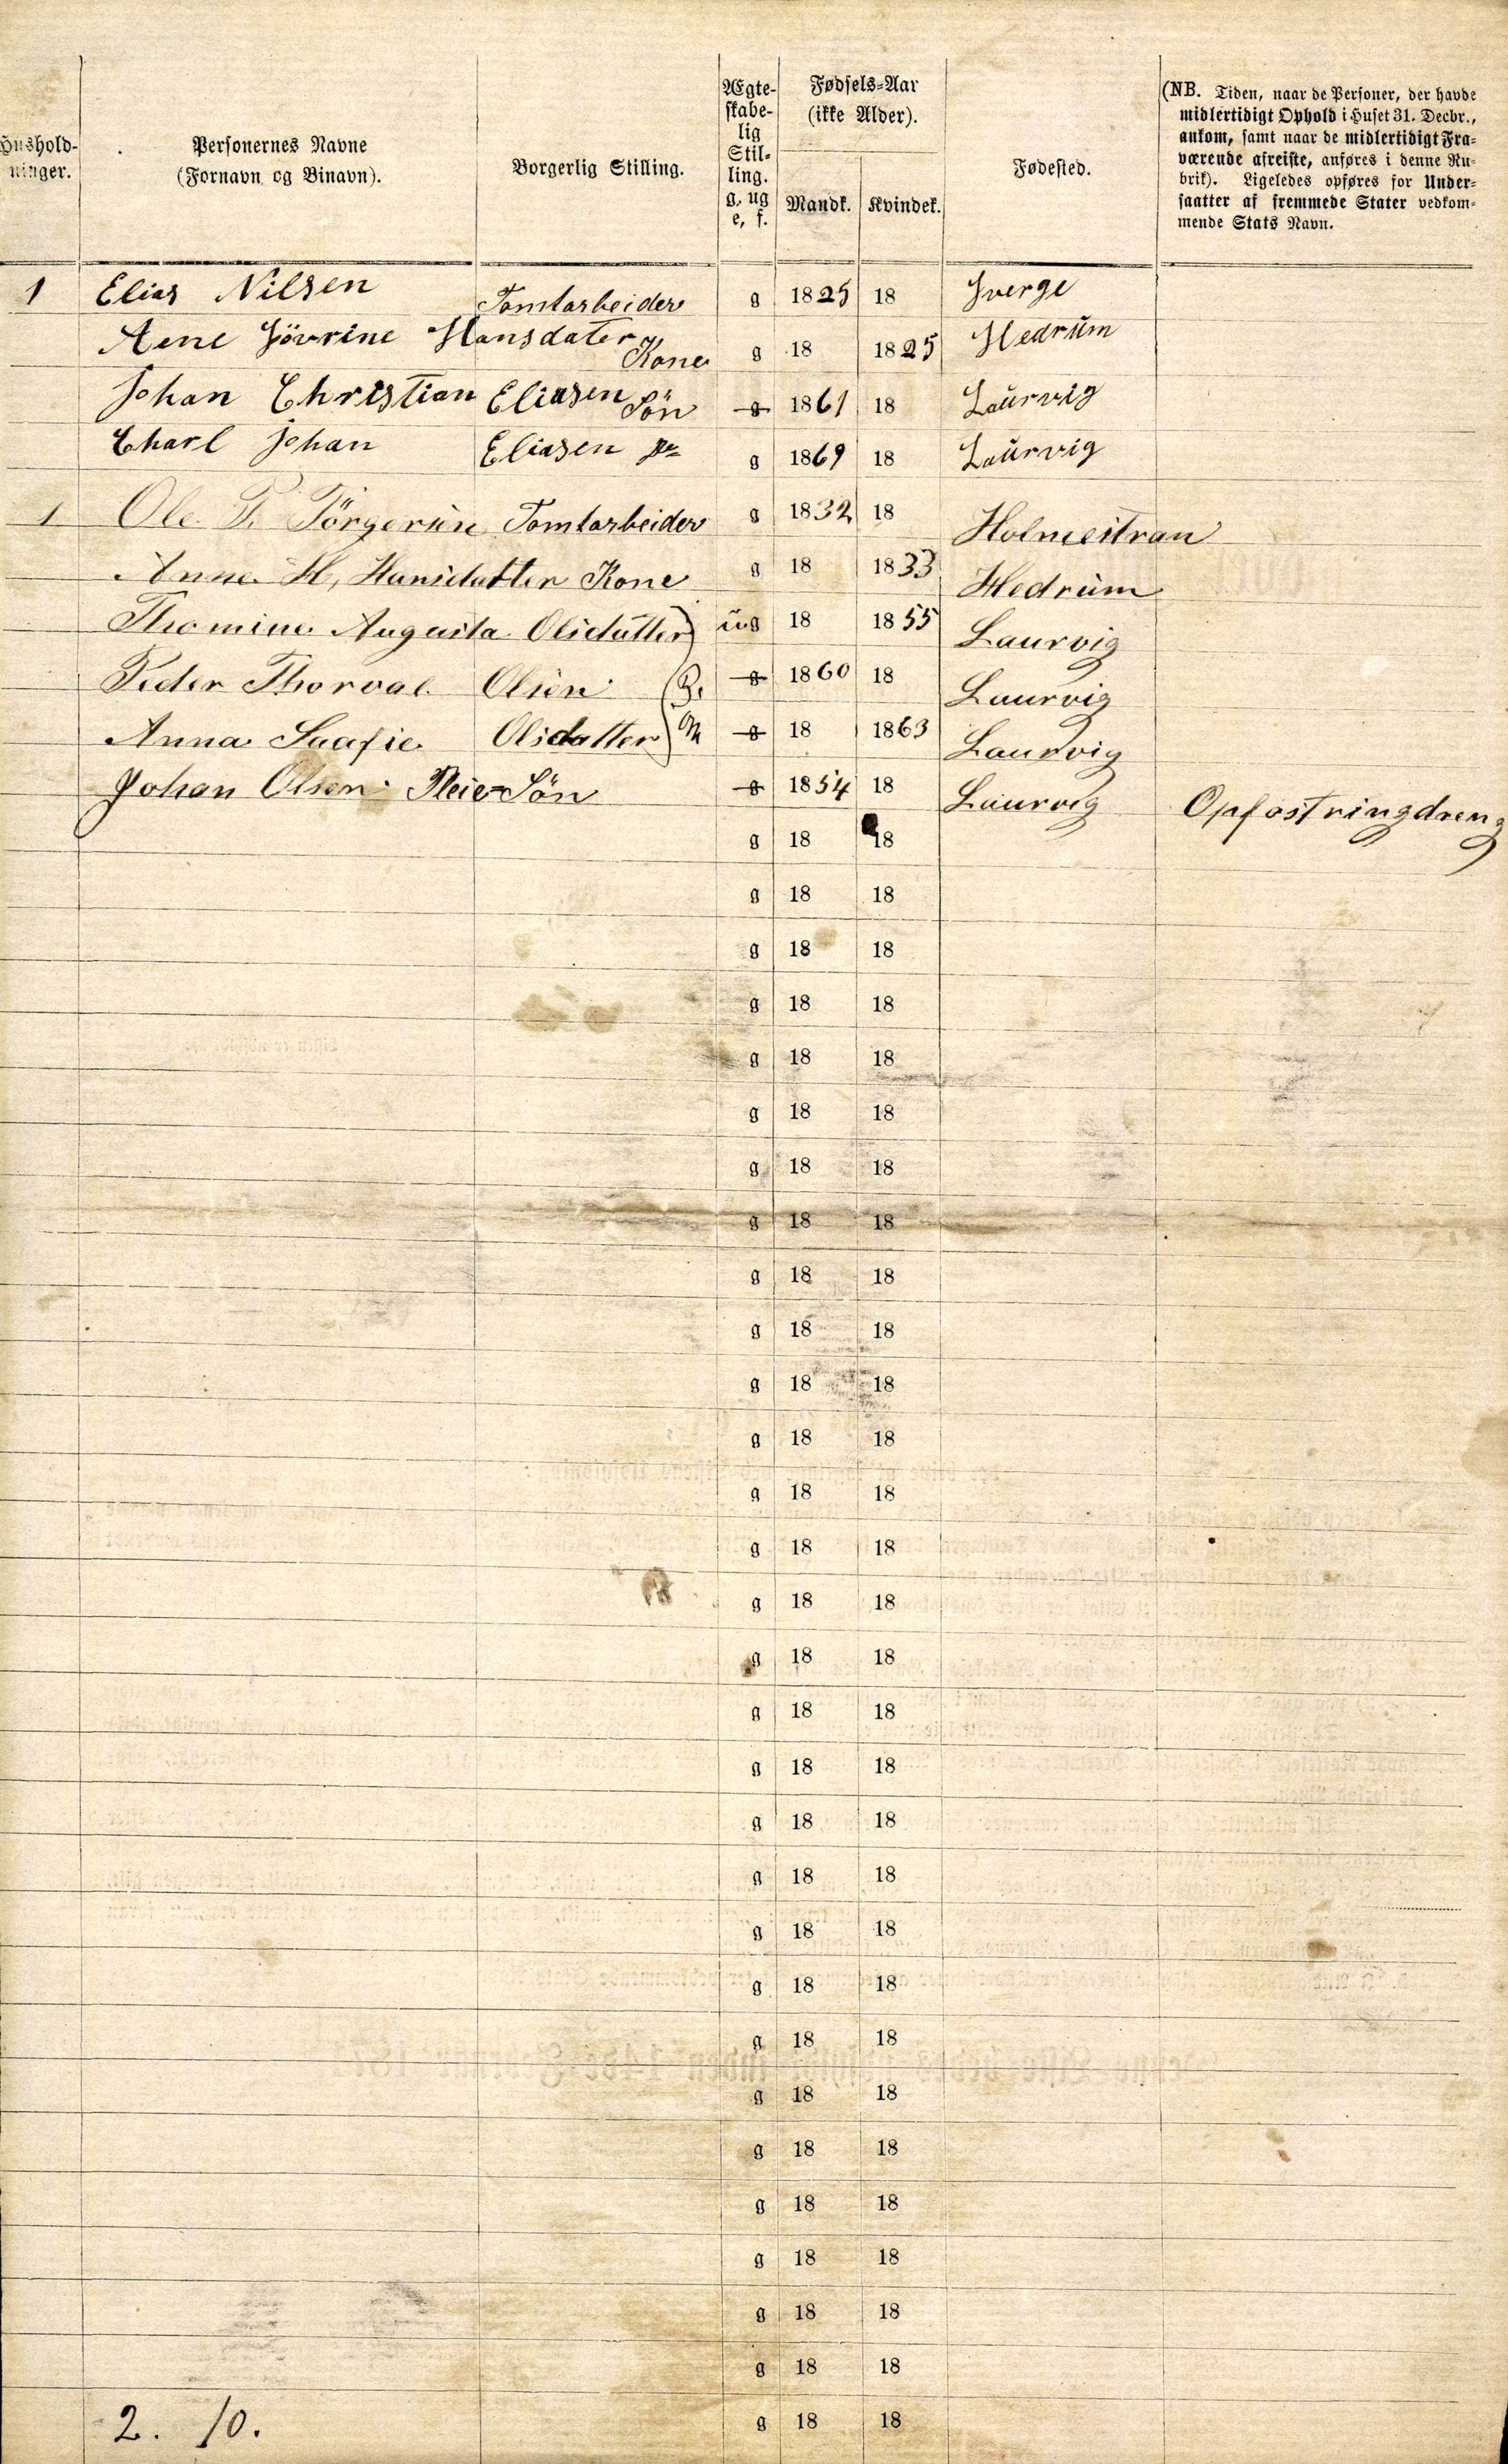 Hushold-
ninger.
Personernes Navne
(Fornavn og Binavn).
Borgerlig Stilling.
Ægte-
skabe-
lig
Stil-
ling.
g, ug
e, f.
Fødsels-Aar
(ikke Alder).
Mandk. Kvindek.
Fødested.
(NB. Tiden, naar de Personer, der havde
midlertidigt Ophold i Huset 31. Decbr.,
ankom, samt naar de midlertidigt Fra-
værende afreiste, anføres i denne Ru-
brik). Ligeledes opføres for Under-
saatter af fremmede Stater vedkom-
mende Stats Navn.
1 Elias Nilsen Tomtarbeider g 1825 18 Sverge
Aene Jövrine Hansdater Kone g 18 1825 Hedrüm
Johan Christian Eliasen Sön g 1861 18 Laürvig
Charl Johan Eliasen g 1869 18 Laürvig
1 Ole T. Törgersün Tomtarbeider g 1832 18 Holmestran
Anne H, Hansdatter Kone g 18 1833 Hedrüm
Thomine Augusta Olsdatter üg 18 1855 Laurvig
Peder Thorval Olsen B. g 1860 18 Laurvig
Anna Saafie Olsdatter g 18 1863 Laurvig
Johan Olsen Pleie-Sön g 1854 18 Laurvig Opfostringdreng
g 18 18
g 18 18
g 18 18
g 18 18
g 18 18
g 18 18
g 18 18
g 18 18
g 18 18
g 18 18
g 18 18
g 18 18
g 18 18
g 18 18
g 18 18
g 18 18
g 18 18
g 18 18
g 18 18
g 18 18
g 18 18
g 18 18
g 18 18
g 18 18
g 18 18
g 18 18
g 18 18
g 18 18
g 18 18
2. 10. g 18 18